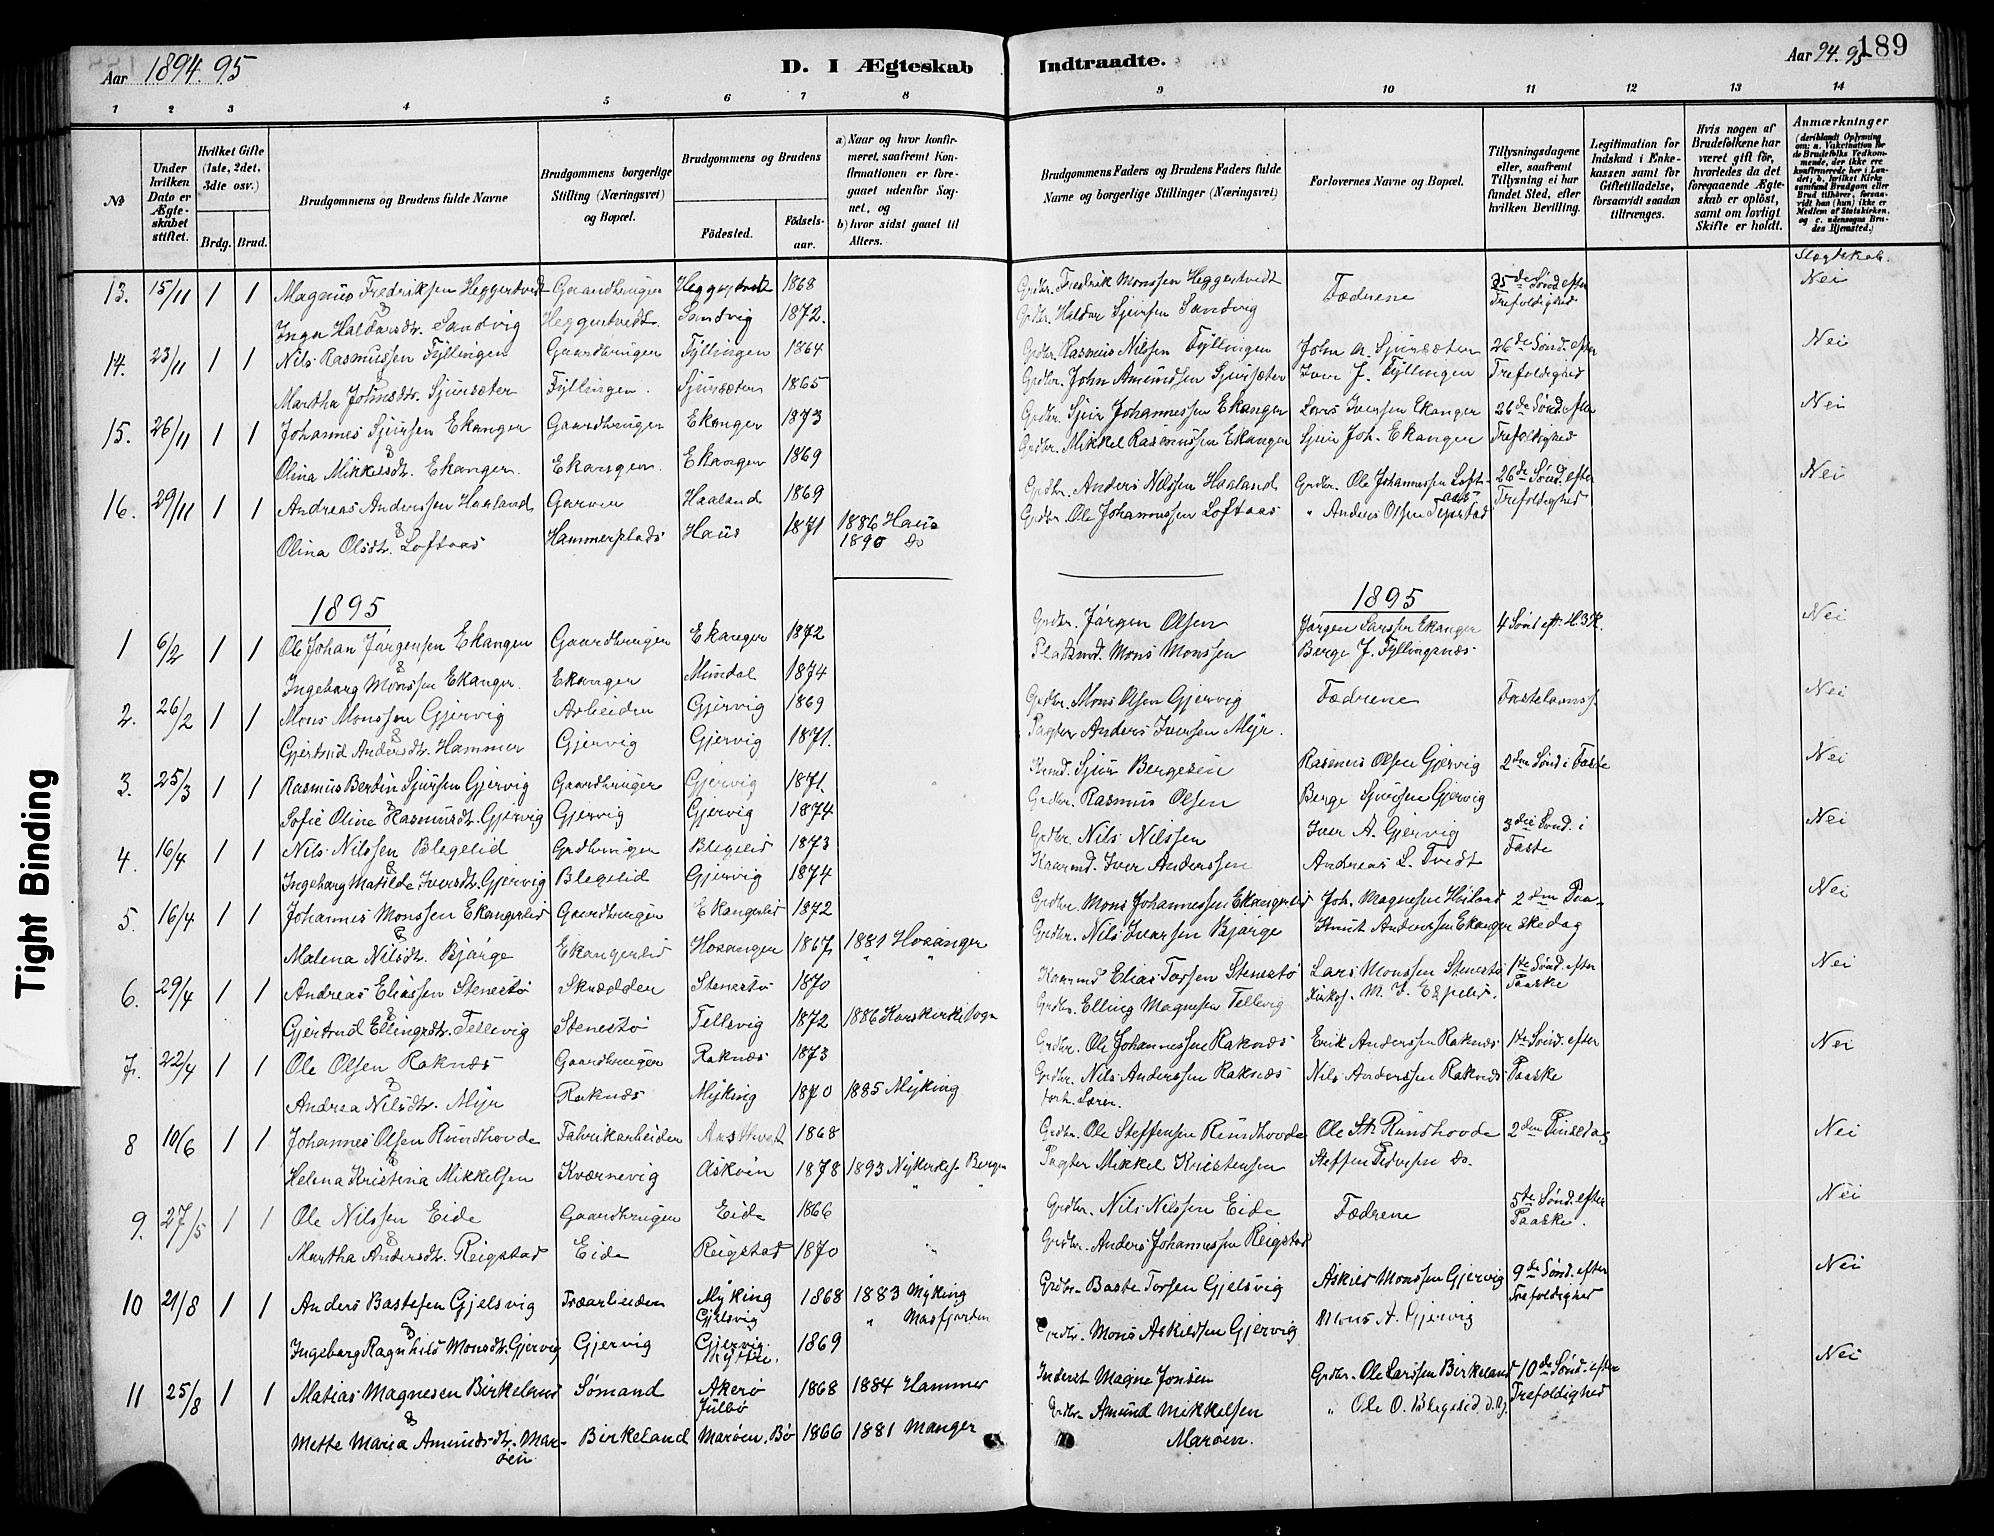 Aar 1894.95
D. I Ægteskab
Indtraadte.
Aar 94.95
189
1 2 3 4 5 6 7 8 9 10 11 12 13 14
No
Under hvilken Dato er Ægteskabet stiftet.
Hvilket Gifte (1ste, 2det, 3die osv.)
Brdg. Brud.
Brudgommens og Brudens fulde Navne
Brudgommens borgerlige Stilling (Næringsvei) og Bopæl.
Brudgommens og Brudens
Fødested.
Fødselsaar.
a) Naar og hvor konfirmeret, saafremt Konfirmationen er foregaaet udenfor Sognet, og
b) hvor sidst gaaet til Alters.
Brudgommens Faders og Brudens Faders fulde Navne og borgerlige Stillinger (Næringsvei)
Forlovernes Navne og Bopæl.
Tillysningsdagene eller, saafremt Tillysning ei har fundet Sted, efter hvilken Bevilling.
Legitimation for Indskud i Enkekassen samt for Giftetilladelse, forsaavidt saadan tiltrænges.
Hvis nogen af Brudefolkene har været gift før, hvorledes da det foregaaende Ægteskab er opløst, samt om lovligt Skifte er holdt.
Anmærkninger
(deriblandt Oplysning om: a. Vaccination for de Brudefolks Vedkommende, der ikke ere konfirmerede her i Landet; b. hvilket Kirkesamfund Brudgom eller Brud tilhører, forsaavidt han (hun) ikke er Medlem af Statskirken, og c. udensogns Brudes Hjemsted.)
Slægtskab.
13. 15/11 1 1 Magnus Fredriksen Heggertvedt Gaardbruger Heggertvedt 1868 Grdbr. Fredrik Monssen Heggertvedt Fædrene 25de Sønd. efter Nei
& Inga Haldorsdtr. Sandvig Heggertvedt. Sandvig 1872. Grdbr. Haldor Sjursen Sandvig Trefoldighed
14. 23/11 1 1 Nils Rasmussen Fyllingen Gaardbruger Fyllingen 1864 Grdbr. Rasmus Nilsen Fyllingen John A. Sjursæter 26de Sønd. efter Nei
Martha Johnsdtr. Sjursæter Fyllingen. Sjursæter 1865 Grdbr. John Amundsen Sjursæter Iver J. Fyllingen Trefoldighed
15. 26/11 1 1 Johannes Sjursen Ekanger Gaardbruger Ekanger 1873 Grdbr. Sjur Johannessen Ekanger Lars Iversen Ekanger 26de Sønd. efter Nei
& Olina Mikkelsdtr. Ekanger. Ekanger. Ekanger 1869 Grdbr. Mikkel Rasmussen Ekanger Sjur Joh. Ekanger Trefoldighed
16. 29/11 1 1 Andreas Anderssen Haaland Garver Haaland 1869 Grdbr. Anders Nilssen Haaland Grdbr. Ole Johannessen Loftaas 26de Sønd. efter Nei
& Olina Olsdtr. Loftaas Hammerplads Haus 1871 1886 Haus Grdbr. Ole Johannessen Loftaas " Anders Olsen Trefoldighed
1890 do
1895
1895
1 6/2 1 1 Ole Johan Jørgensen Ekanger Gaardbruger Ekanger 1872 Grdbr. Jørgen Olsen Jørgen Larssen Ekanger 4 Sønd. eft. H.3.K. Nei
& Ingeborg Monssen Ekanger. Ekanger Mundal 1874 Pladsmd. Mons Monssen Berge J. Fyllingsnæs
2. 26/2 1 1 Mons Monssen Gjervig Arbeider Gjervig 1869 Grdbr. Mons Olsen Gjervig Fædrene Fastelavnss. Nei
& Gjertrud Andersdtr. Hammer Gjervig Gjervig 1871. Pagter Anders Iversen Myr.
3. 25/3 1 1 Rasmus Bertin Sjursen Gjervig Gaardbruger Gjervig 1871. Sjur Bergesen Rasmus Olsen Gjervig 2den Sønd. i Faste Nei
& Sofie Oline Rasmusdtr. Gjervig Gjervig Gjervig 1874 Grdbr. Rasmus Olsen Berge Sjursen Gjervig
4. 16/4 1 1 Nils Nilssen Blegelid Grdbruger Blegelid 1873 Grdbr. Nils Nilssen Iver A. Gjervig 3die Sønd. i Nei
Ingeborg Matilde Iversdtr. Gjervig Blegelid Gjervig 1874 Kaarmd. Iver Anderssen Andreas L. Tvedt Faste
5. 16/4 1 1 Johannes Monssen Ekangerlid Gaardbruger Ekangerlid 1872 Grdbr. Mons Johannessen Ekangerlid Joh. Magnesen Hisland 2den Paa- Nei
& Malena Nilsdtr. Bjørge Ekangerlid Hosanger 1867 1881 Hosanger Grdbr. Nils Iversen Bjørge Knut Anderssen Ekanger skedag
6. 29/4 1 1 Andreas Eliassen Stenestø Skrædder Stenestø 1870 Kaarmd Elias Torsen Stenestø Lars Monssen Stenestø 1ste Sønd. efter Nei
& Gjertrud Ellingsdtr. Tellevig Stenestø Tellevig 1872 1886 Korskirkesogn Grdbr. Elling Magnesen Tellevig Kirkes. M. J. Espelid. Paaske
7. 22/4 1 1 Ole Olsen Raknæs Gaardbruger Raknæs 1873 Grdbr. Ole Johannessen Raknæs Erik Anderssen Raknæs 1ste Sønd. efter Nei
& Andrea Nilsdtr. Myr Raknæs Myking 1870 1885 Myking Grdbr. Nils Anderssen Raknæs Nils Anderssen Raknæs Paaske
8 10/6 1 1 Johannes Olsen Rundhovde Fabrikarbeider Aastvedt 1868 Grdbr. Ole Steffensen Rundhovde Ole St. Rundhovde 2den Pinsedag Nei
& Helena Kristina Mikkelsen Kværnevig Askøen 1878 1893 Nykirkes. Bergen Pagter Mikkel Kristensen Steffen do.
9. 27/5 1 1 Ole Nilssen Eide Gaardbruger Eide 1866 Grdbr. Nils Nilssen Eide Fædrene 5te Sønd. efter Nei
& Martha Andersdtr. Reigstad Eide Reigstad 1870 Grdbr. Anders Johannessen Reigstad Paaske.
10 21/8 1 1 Anders Bastesen Gjelsvig Træarbeider Myking Gjelsvig 1868 1883 Myking Grdbr. Baste Torsen Gjelsvig Askild Monssen Gjervig 9de Sønd. efter Nei
" Masfjorden Trefoldighed
& Ingeborg Ragnhild Monsdtr. Gjervig Gjervig Gjervig 1869 Grdbr. Mons Askeldsen Gjervig Mons A. Gjervig
11 25/8 1 1 Matias Magnesen Birkeland Sømand Akerø Julbø 1868 1884 Hammer Inderst Magne Jonsen Grdbr. Ole Larssen Birkeland 10de Sønd. efter Nei
& Mette Maria Amundsdtr. Marøen Birkeland Marøen. Bø 1866 1881 Manger Grdbr. Amund Mikkelsen Marøen. " Ole O. Blegelid Trefoldighed
Tight Binding